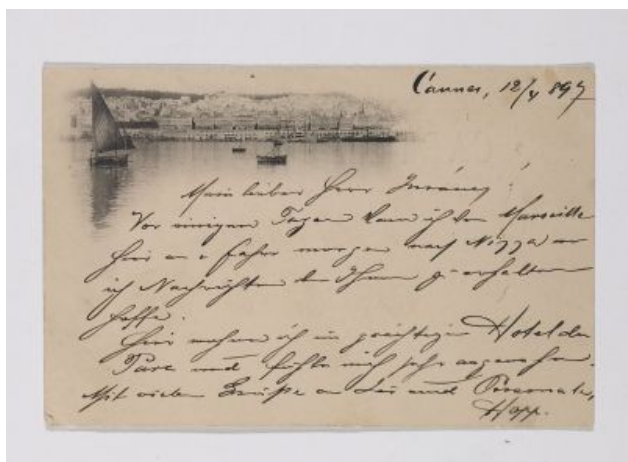 Cannes, 12/V 897
Mein lieber Herr
Vor einigen Tagen kam ich von Marseille
hier an u fahre morgen nach Nizza wo
ich Nachrichten von Ihnen zu erhalten
hoffe.
Hier wohne ich im prächtigen Hotel du
Parc und fühle mich sehr angenehm.
Mit vielen Grüße an Sie und
Hopp.